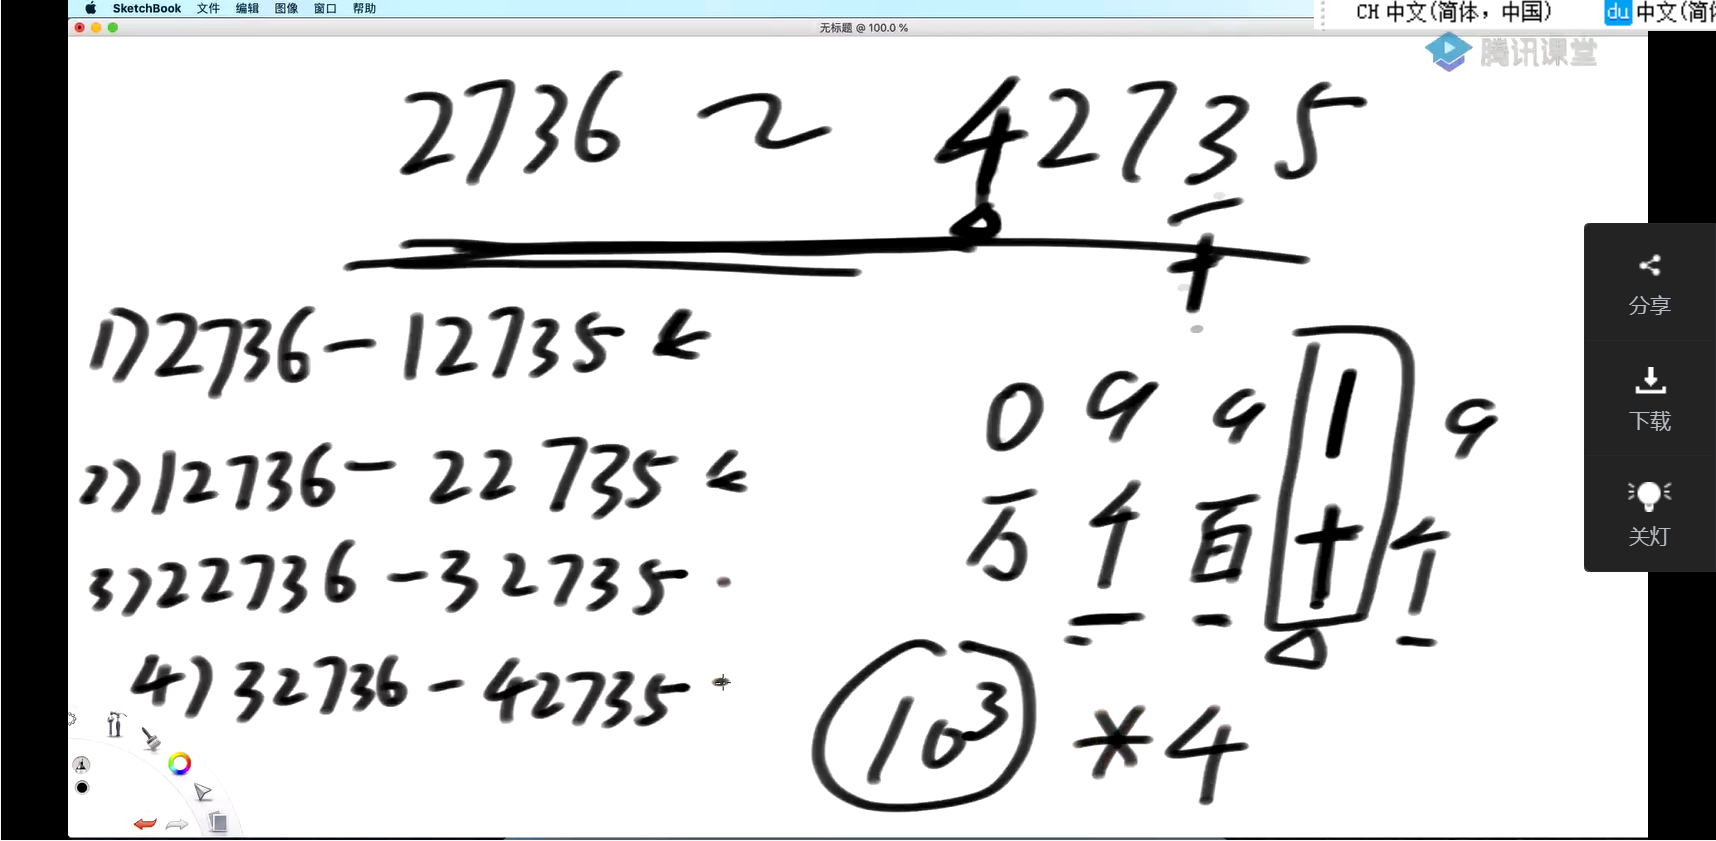 SketchBook 文件 编辑 图像 窗口 帮助
CH 中文(简体，中国)
du 中文(简体
无标题 @ 100.0 %
腾讯课堂
2736 ~ 42735
1) 2736 - 12735
2) 12736 - 22735
3) 22736 - 32735
4) 32736 - 42735
0 9 9 1 9
万 千 百 十 个
10³ * 4
分享
下载
关灯